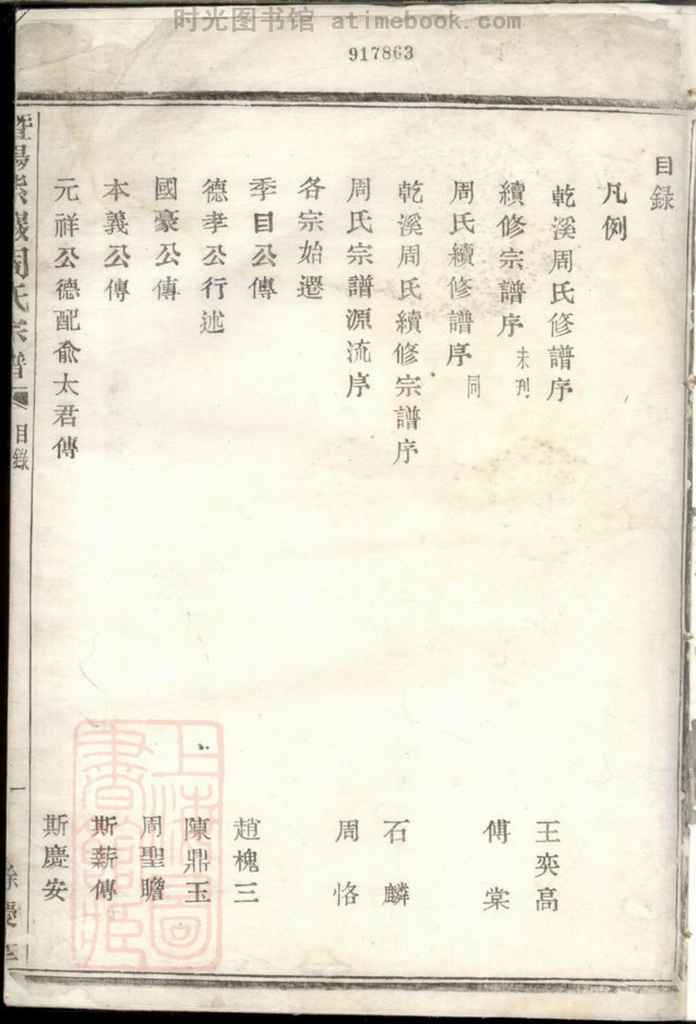 时光图书馆 atimebook.com
917863
目錄
凡例
乾溪周氏修譜序 王奕高
續修宗譜序 未刋 傅棠
周氏續修譜序 同
乾溪周氏續修宗譜序 石麟
周氏宗譜源流序 周恪
各宗始遷
季目公傳 趙槐三
德孝公行述 陳鼎玉
國豪公傳 周聖瞻
本義公傳 斯薪傳
元祥公德配俞太君傳 斯慶安
暨陽紫巖周氏宗譜 目錄 一
上海圖書館藏